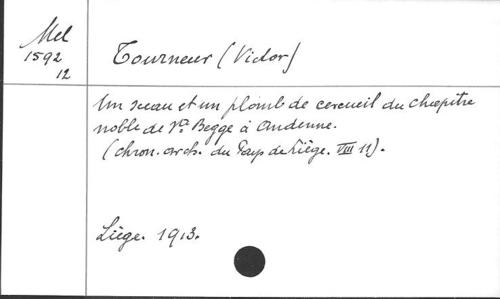 Mel
1592
12
Tourneur (Victor)
Un sceau et un plomb de cercueil du chapitre
noble de Ste Begge à Andenne.
(Chron. arch. du Pays de Liège. VIII 11).
Liège. 1913.